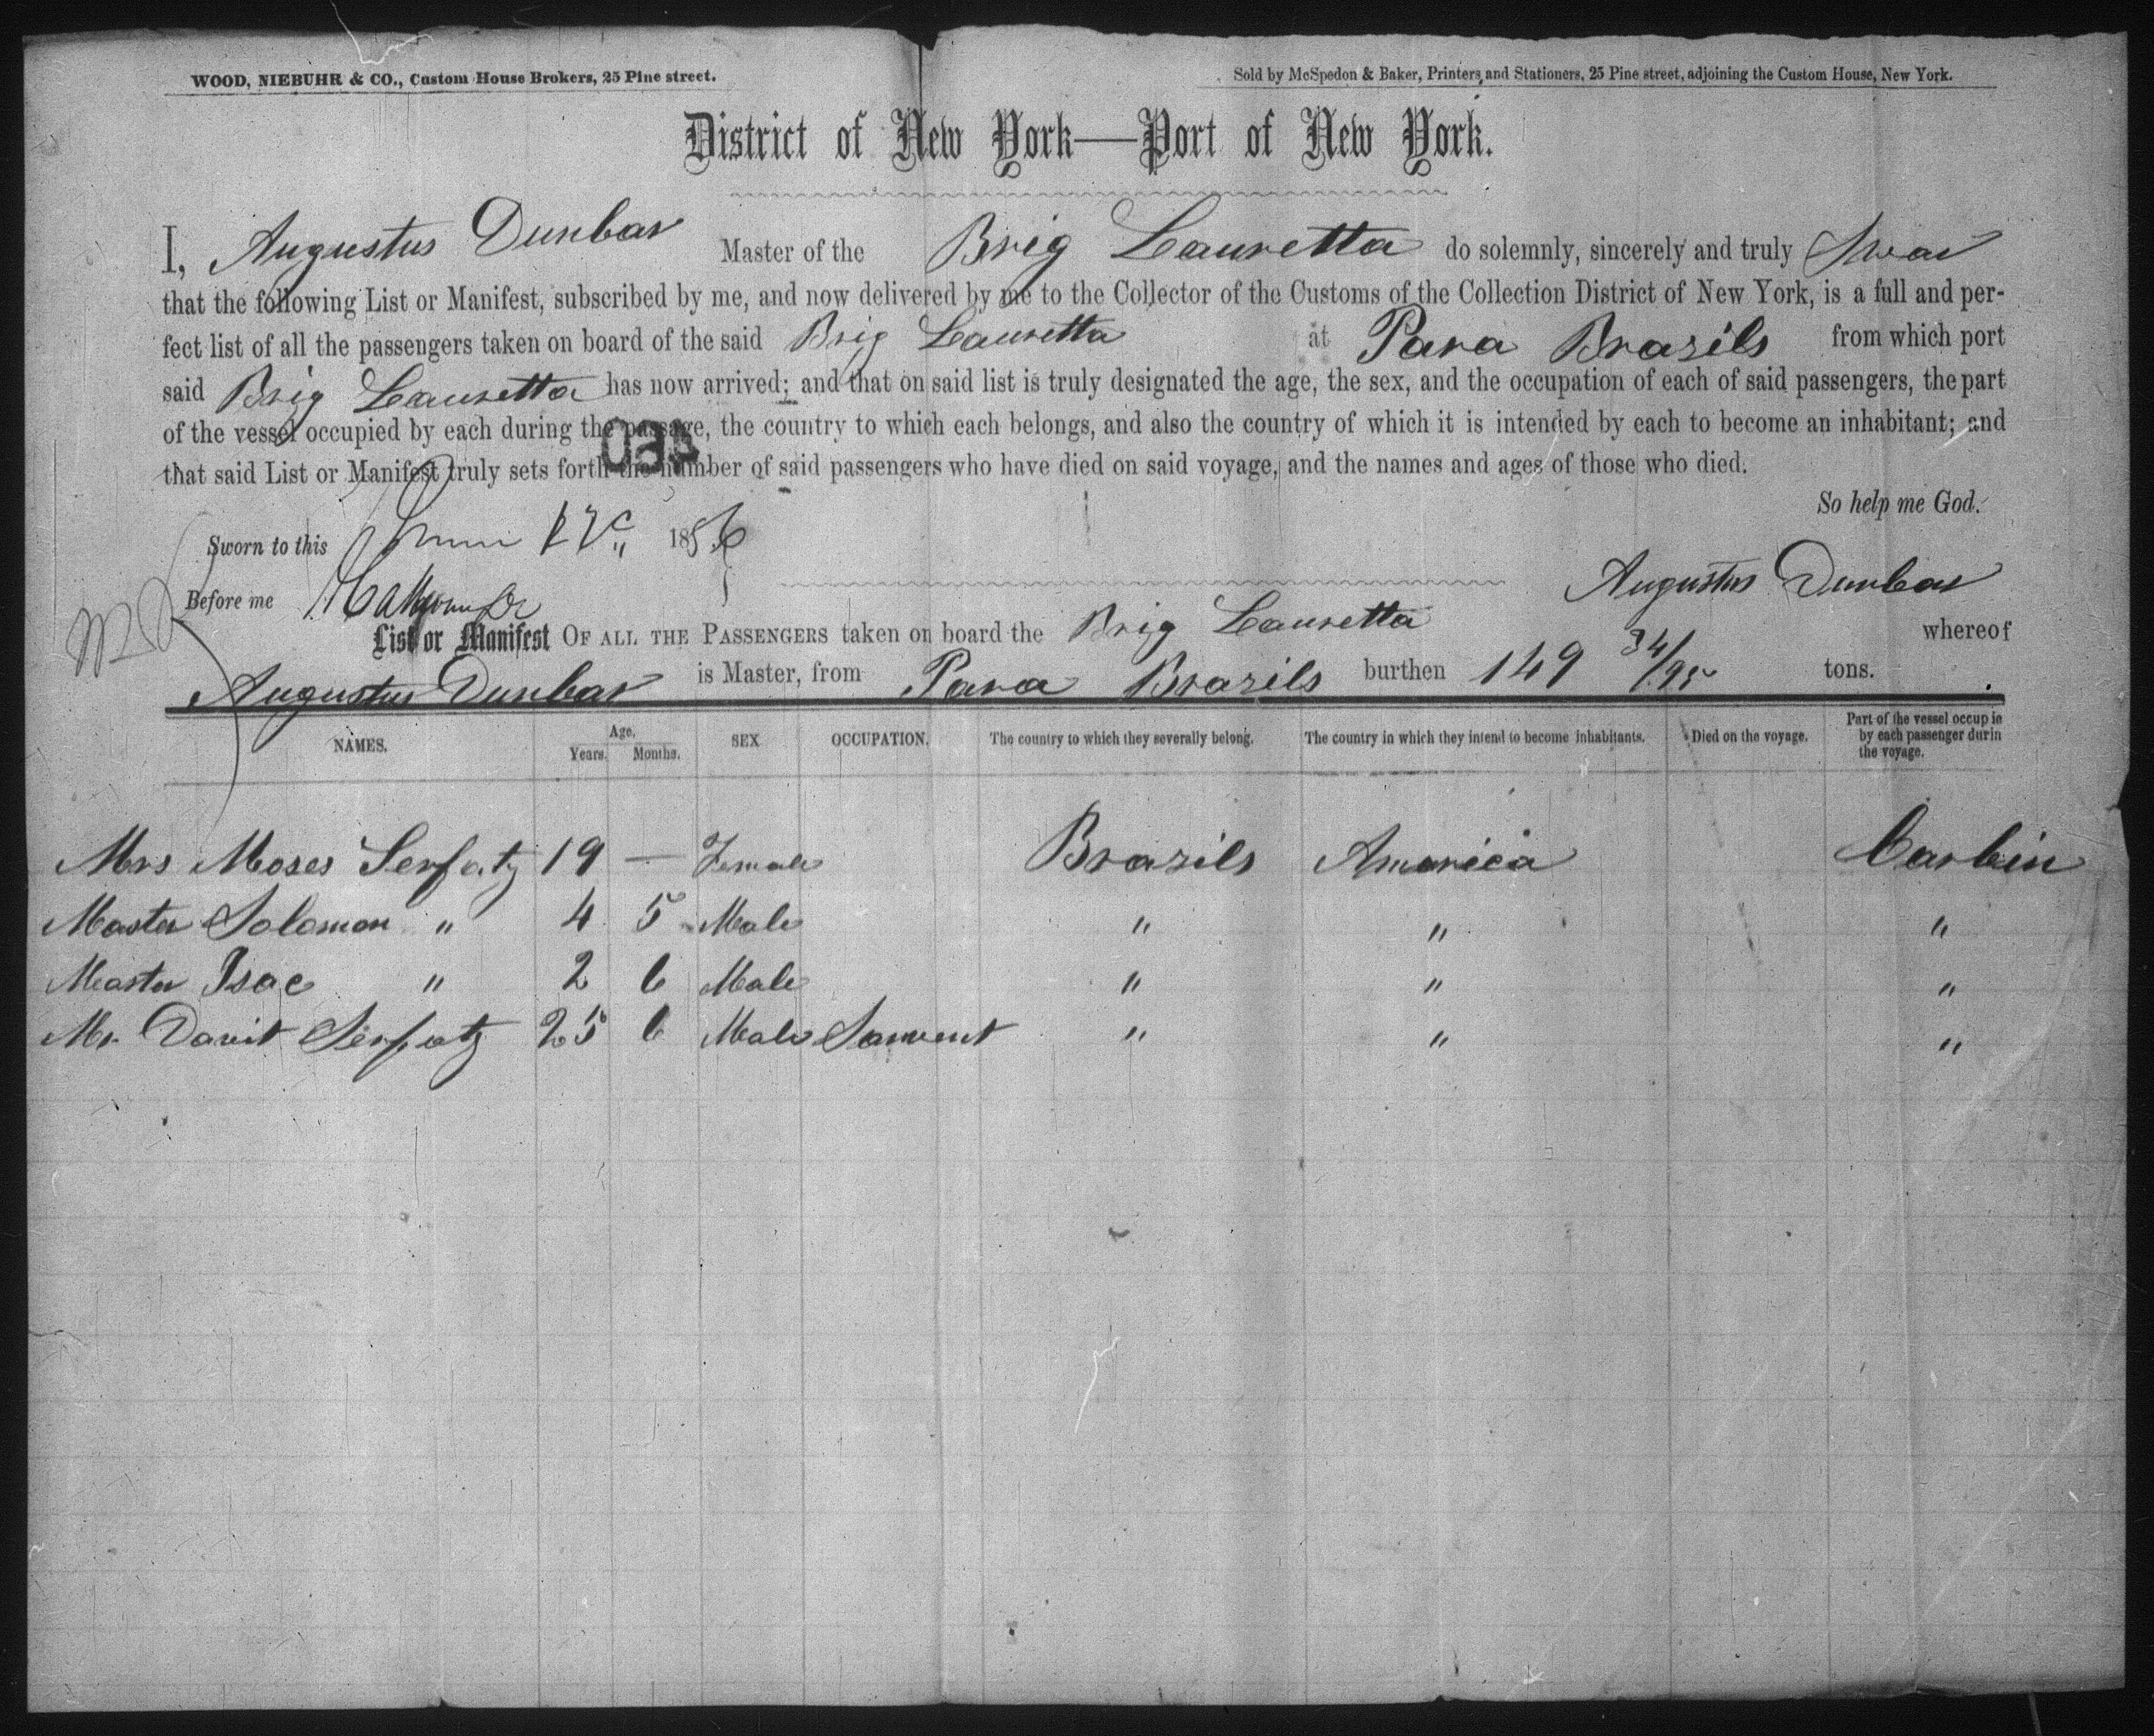 WOOD, NIEBUHR & CO., Custom House Brokers, 25 Pine street.
Sold by McSpedon & Baker, Printers and Stationers, 25 Pine street, adjoining the Custom House, New York.
District of New York—Port of New York.
I, Augustus Dunbar Master of the Brig Lauretta do solemnly, sincerely and truly Swear
that the following List or Manifest, subscribed by me, and now delivered by me to the Collector of the Customs of the Collection District of New York, is a full and per-
fect list of all the passengers taken on board of the said Brig Lauretta at Para Brazils from which port
said Brig Lauretta has now arrived; and that on said list is truly designated the age, the sex, and the occupation of each of said passengers, the part
of the vessel occupied by each during the passage, the country to which each belongs, and also the country of which it is intended by each to become an inhabitant; and
that said List or Manifest truly sets forth the number of said passengers who have died on said voyage, and the names and ages of those who died.
So help me God.
Sworn to this June 1856
Before me
Augustus Dunbar
List or Manifest OF ALL THE PASSENGERS taken on board the Brig Lauretta whereof
Augustus Dunbar is Master, from Para Brazils burthen 149 34/95 tons.
NAMES. Age. Years. Months. SEX OCCUPATION. The country to which they severally belong. The country in which they intend to become inhabitants. Died on the voyage. Part of the vessel occup ie by each passenger durin the voyage.
Mrs Moses Serfaty 19 — Female Brazils America Carbin
Master Solomon " 4 5 Male " " "
Master Isac " 2 6 Male " " "
Mr. Davit Serfaty 25 6 Male Sarvent " " "